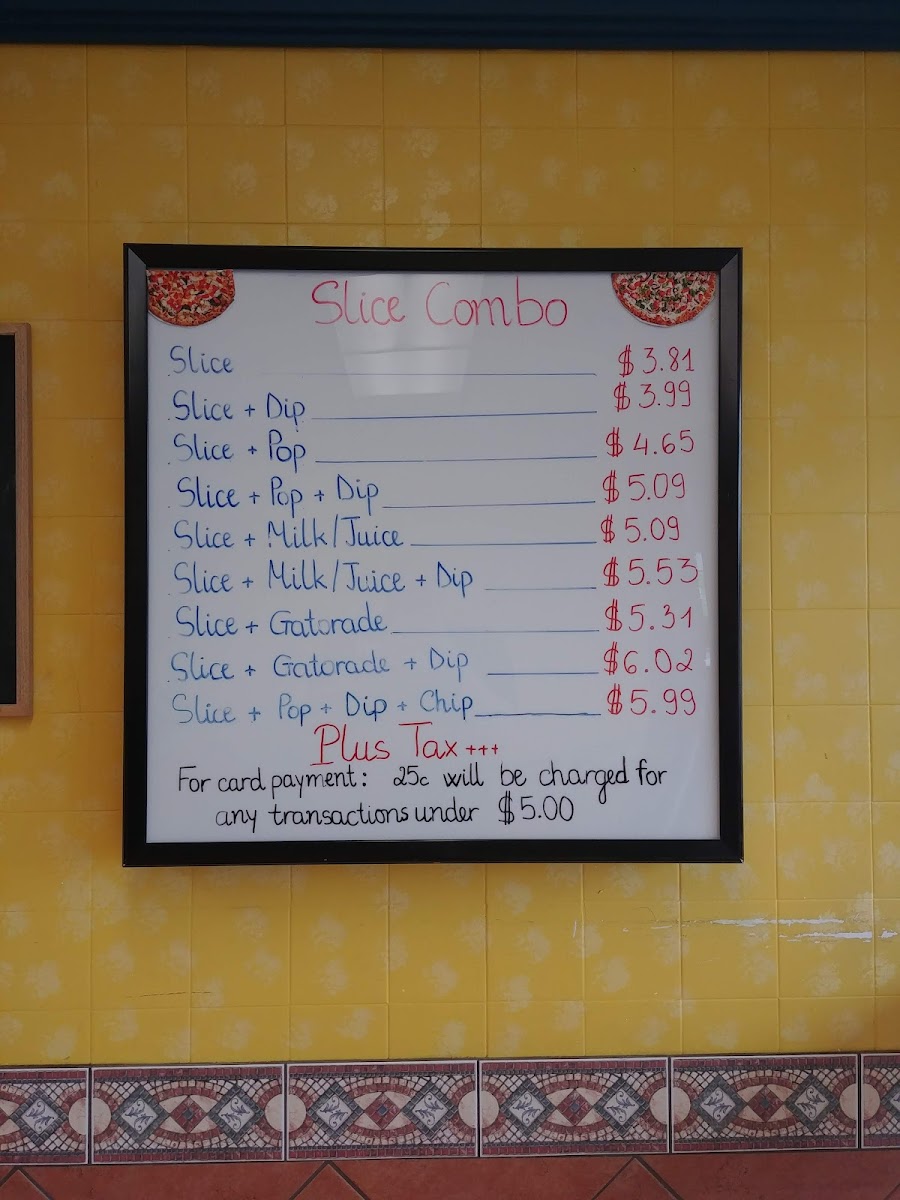 Slice Combo
Slice $3.81
Slice + Dip $3.99
Slice + Pop $4.65
Slice + Pop + Dip $5.09
Slice + Milk/Juice $5.09
Slice + Milk/Juice + Dip $5.53
Slice + Gatorade $5.31
Slice + Gatorade + Dip $6.02
Slice + Pop + Dip + Chip $5.99
Plus Tax +++
For card payment: 25c will be charged for
any transactions under $5.00